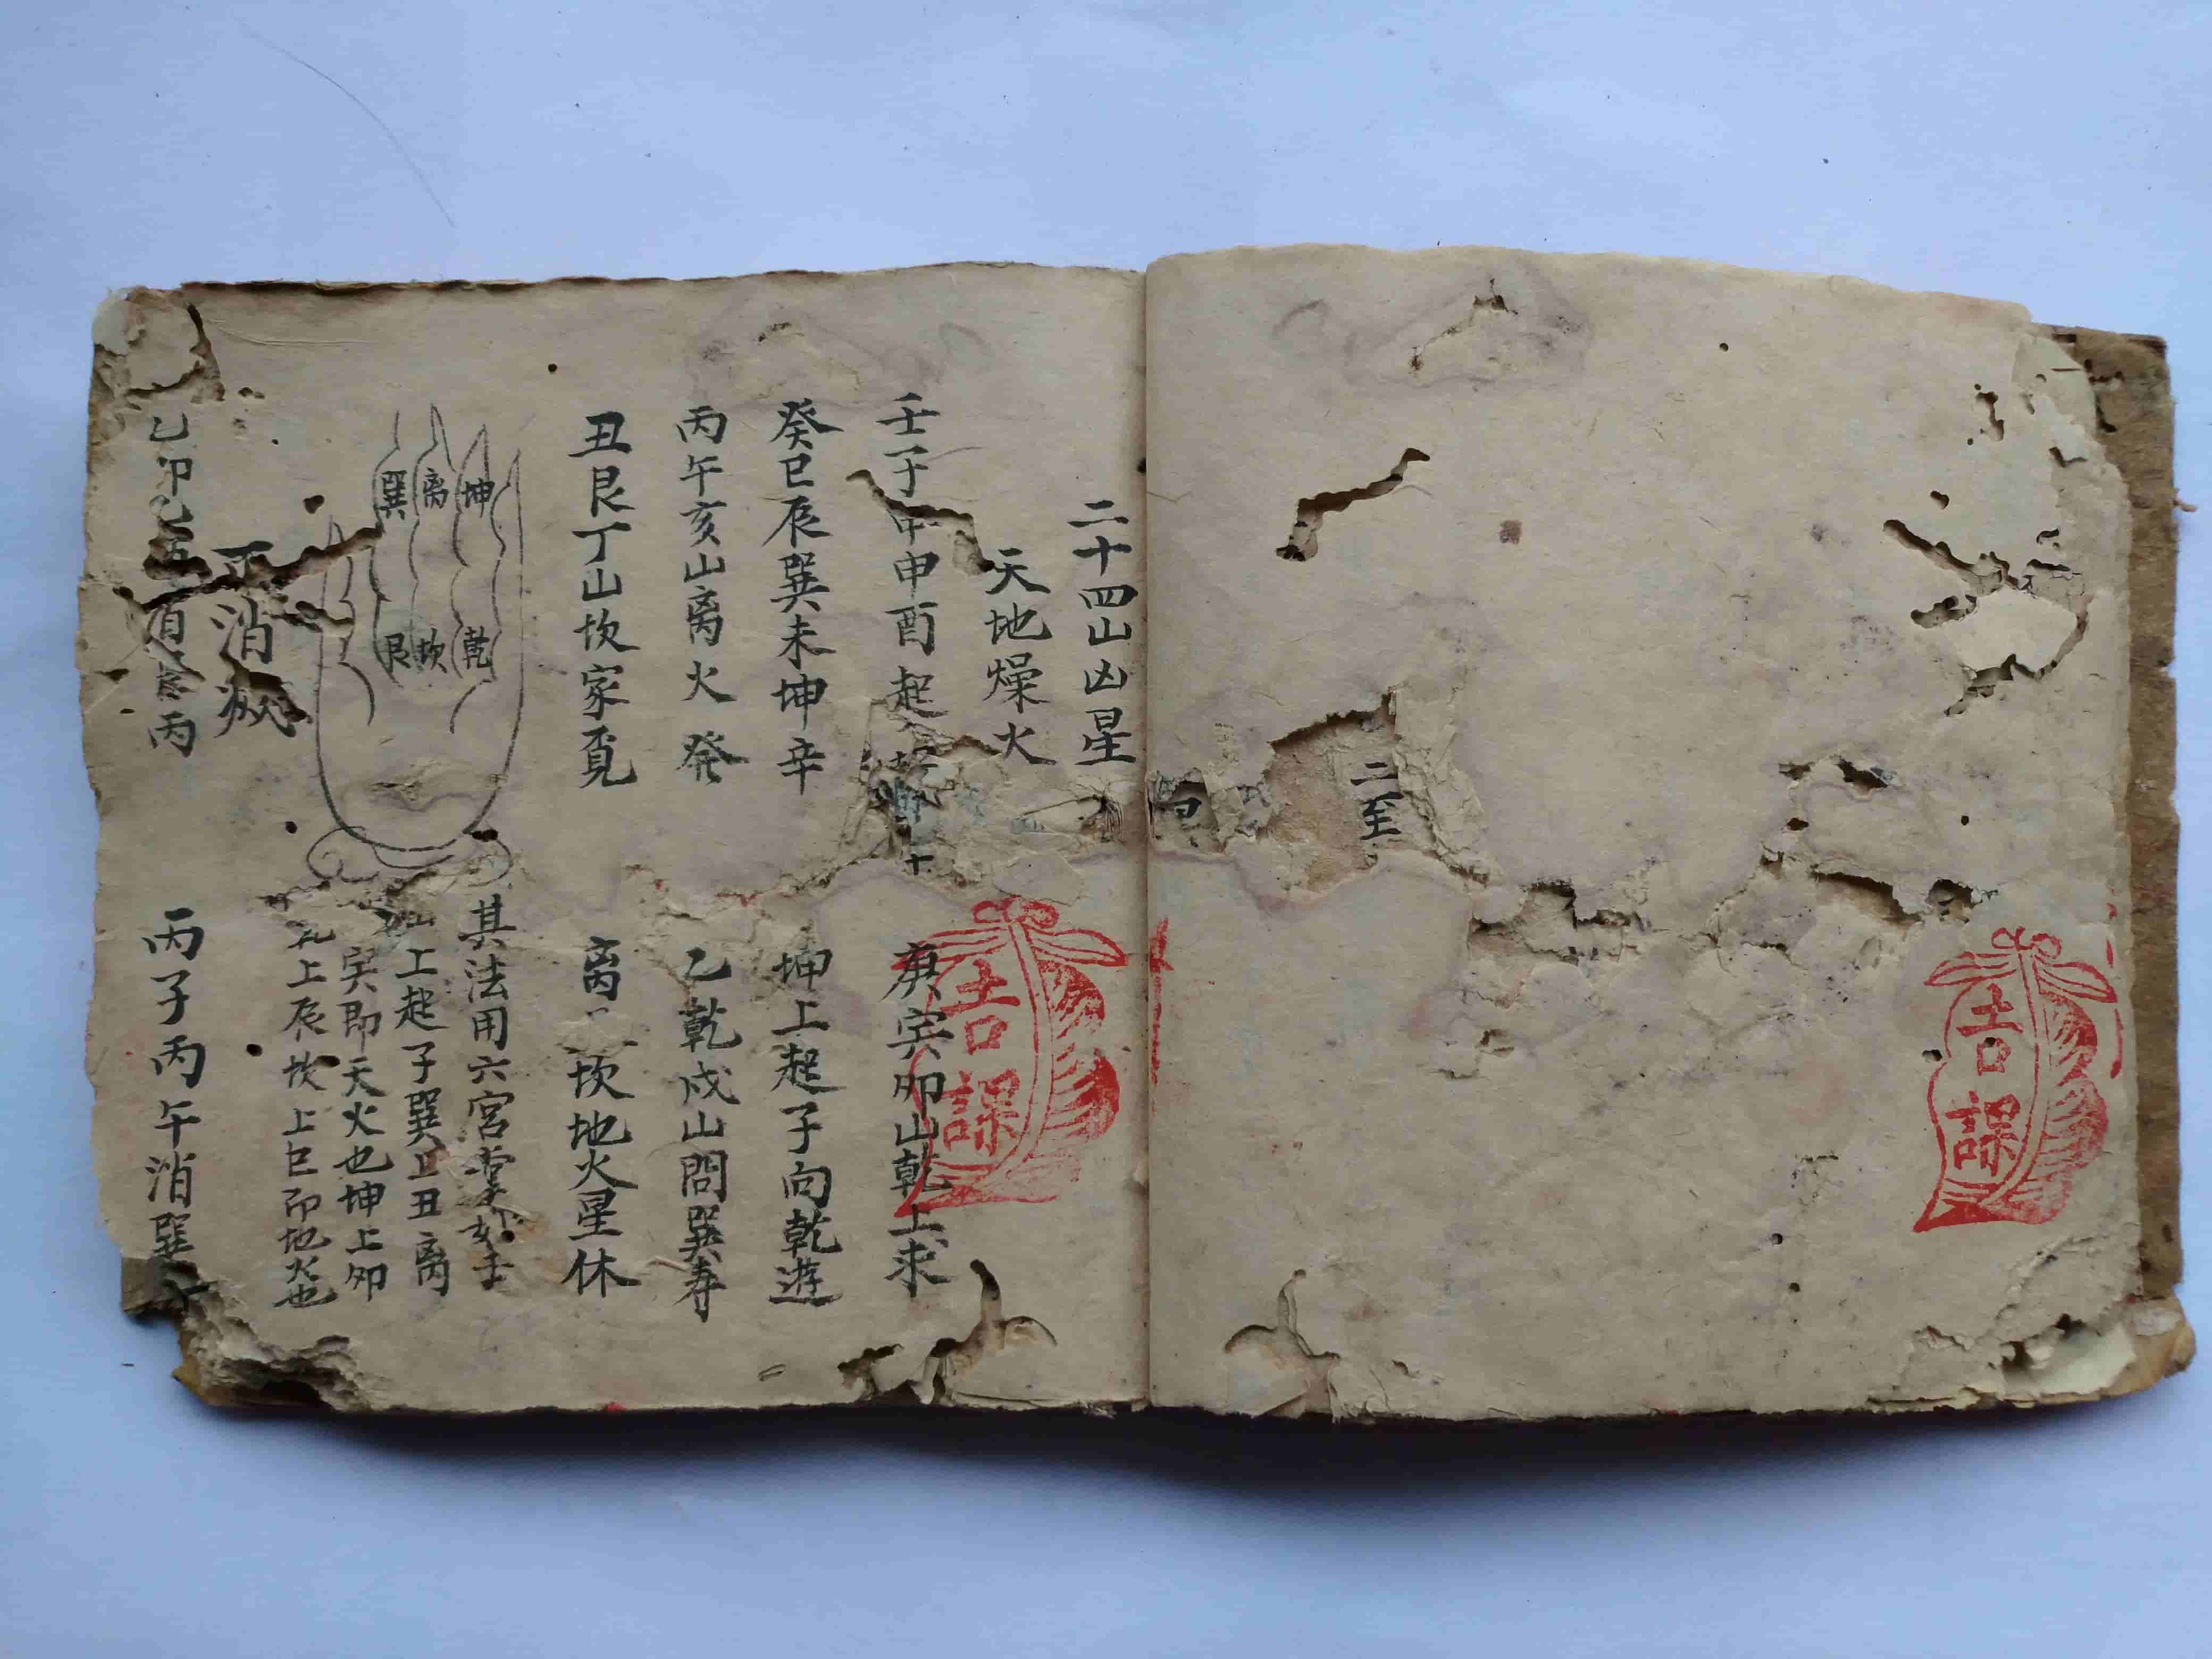 二至
吉課
二十四山凶星
天地燥火
壬子甲申酉起
庚寅卯山乾上求
吉課
癸巳辰巽未坤辛
坤上起子向乾遊
丙午亥山离火發
乙乾戍山問巽寿
丑艮丁山坎家覓
离 坎地火星休
坤
离
巽
乾
坎
艮
其法用六宮掌如
上起子巽上丑离
寅即天火也坤上卯
上辰坎上巳即地火也
消
乙卯
丙
丙子丙午消巽